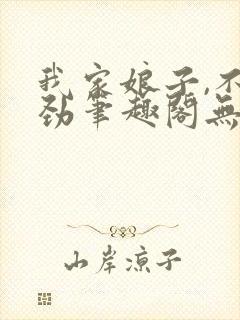 我家娘子,不
劲笔趣阁无
山岸凉子